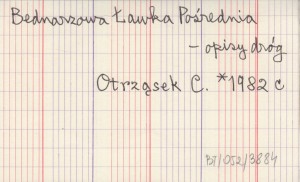 Bednarzowa Ławka Pośrednia
- opisy dróg
Otrząsek C. *1982 c
B7/052/3884